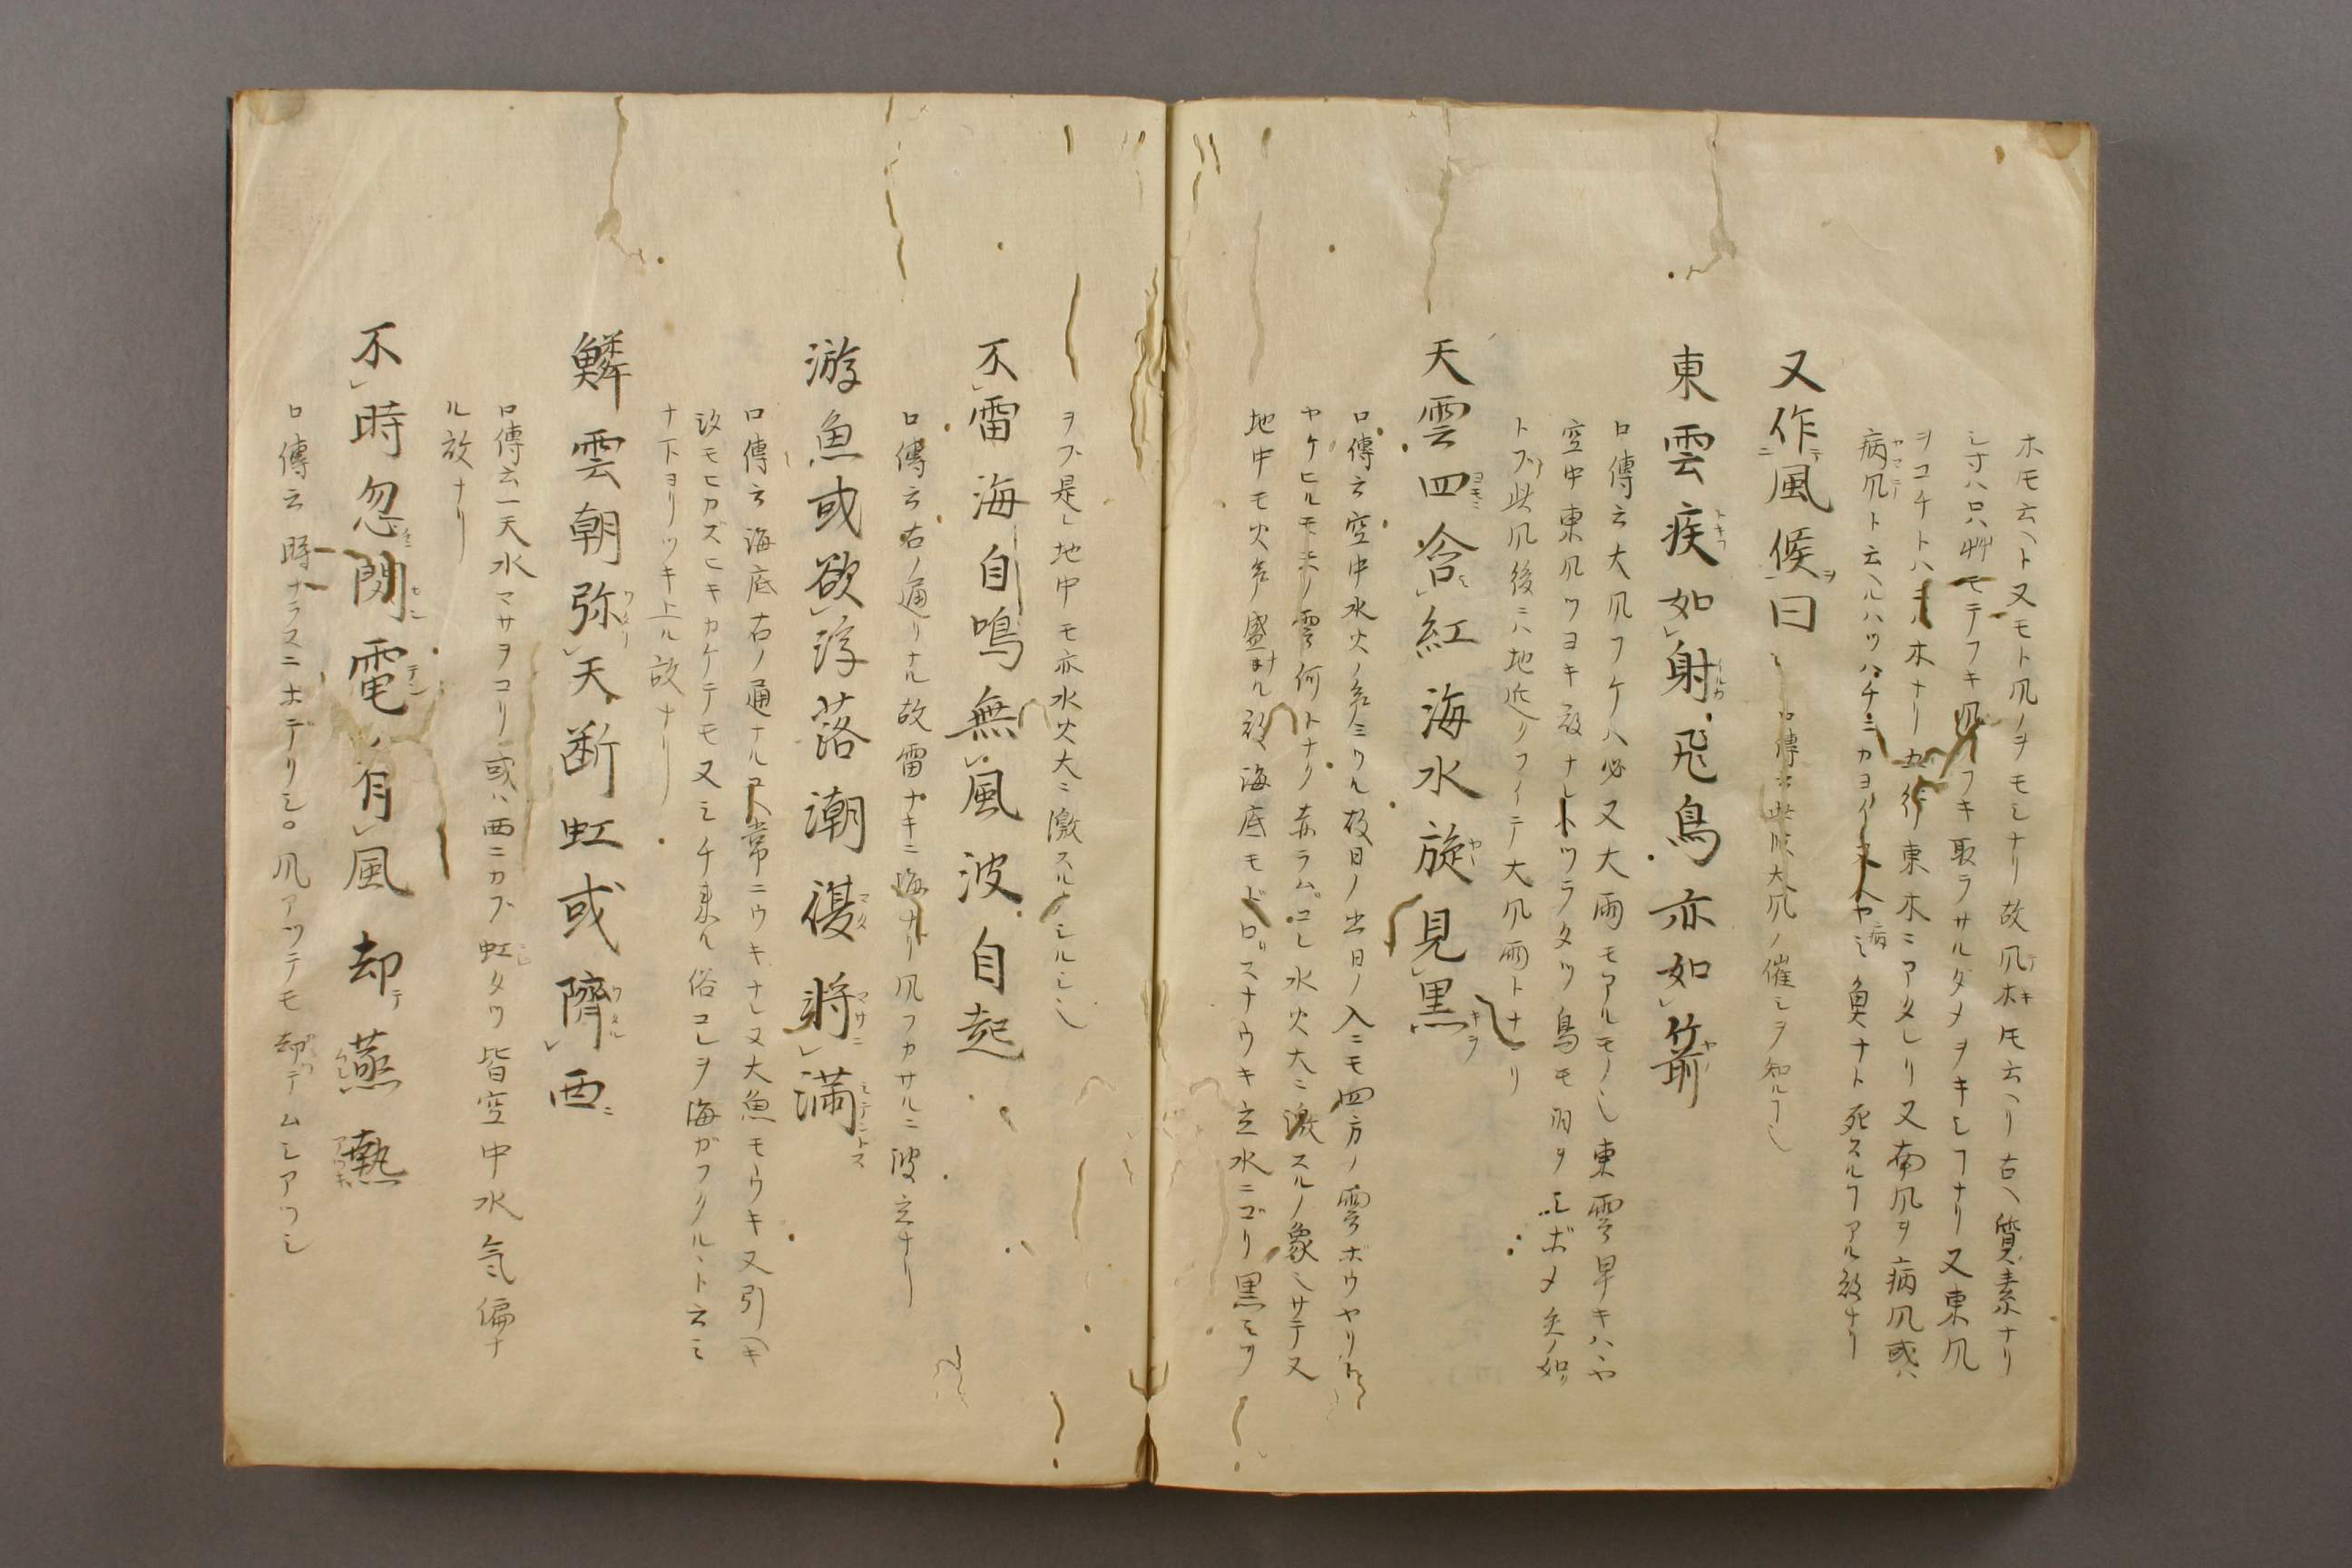 ホ圧云ヘト又モト凮ノヲモシナリ故凮木圧云ヘリ古ヘ質素ナリ
シ寸ハ只艸モテフキ凮フキ取ラサルタメヲキシフナリ又東凮
ヲコチトハ木ナリ五行東木ニアタレリ又南凮ヲ病凮或ハ
病凮ト云ヘルハツハチニカヨイ人ヤミ魚ナト死スルヿアル故ナリ
又作風候曰 口傳云此順大凮ノ催シヲ知ルヿ也
東雲疾如射飛鳥亦如箭
口傳云大凮フケハ必又大雨モアルモノ也東雲早キハハヤ
空中東凮ツヨキ故ナレトツラタツ鳥モ羽ヲシボメ矢ノ如
トフ此凮後ニハ地近クフイテ大凮雨トナリ
天雲四含紅海水旋見黒
口傳云空中水火ノ気ミツル故日ノ出日ノ入ニモ四方ノ雲ボウヤリト
ヤケヒルモ雲何トナク赤ラムコレ水火大ニ激スルノ象也サテ又
地中モ火気盛ナル故海底モドロスナウキ立水ニゴリ黒ミヲ
ヲフ是地中モ亦水火大ニ激スルノシルシ也
不雷海自鳴無風波自起
口傳云右ノ通リナル故雷ナキニ海ナリ凮フカサルニ波立ナリ
游魚或欲浮落潮復将満
口傳云海底右ノ通ナルユヘ常ニウキナレ又大魚モウキ又引ヘキ
汐モヒカズヒキカケテモ又ミチ来ル俗コレヲ海ガフクルヽト云ミ
ナ下ヨリツキ上ル故ナリ
鱗雲朝弥天断虹或隮西
口傳云一天水マサヲコリ或ハ西ニカブ虹タツ皆空中水気偏ナ
ル故ナリ
不時忽閃電ノ有風却燕熱
口傳云時ナラスニホデリシ。凮アツテモ却テムシアツシ